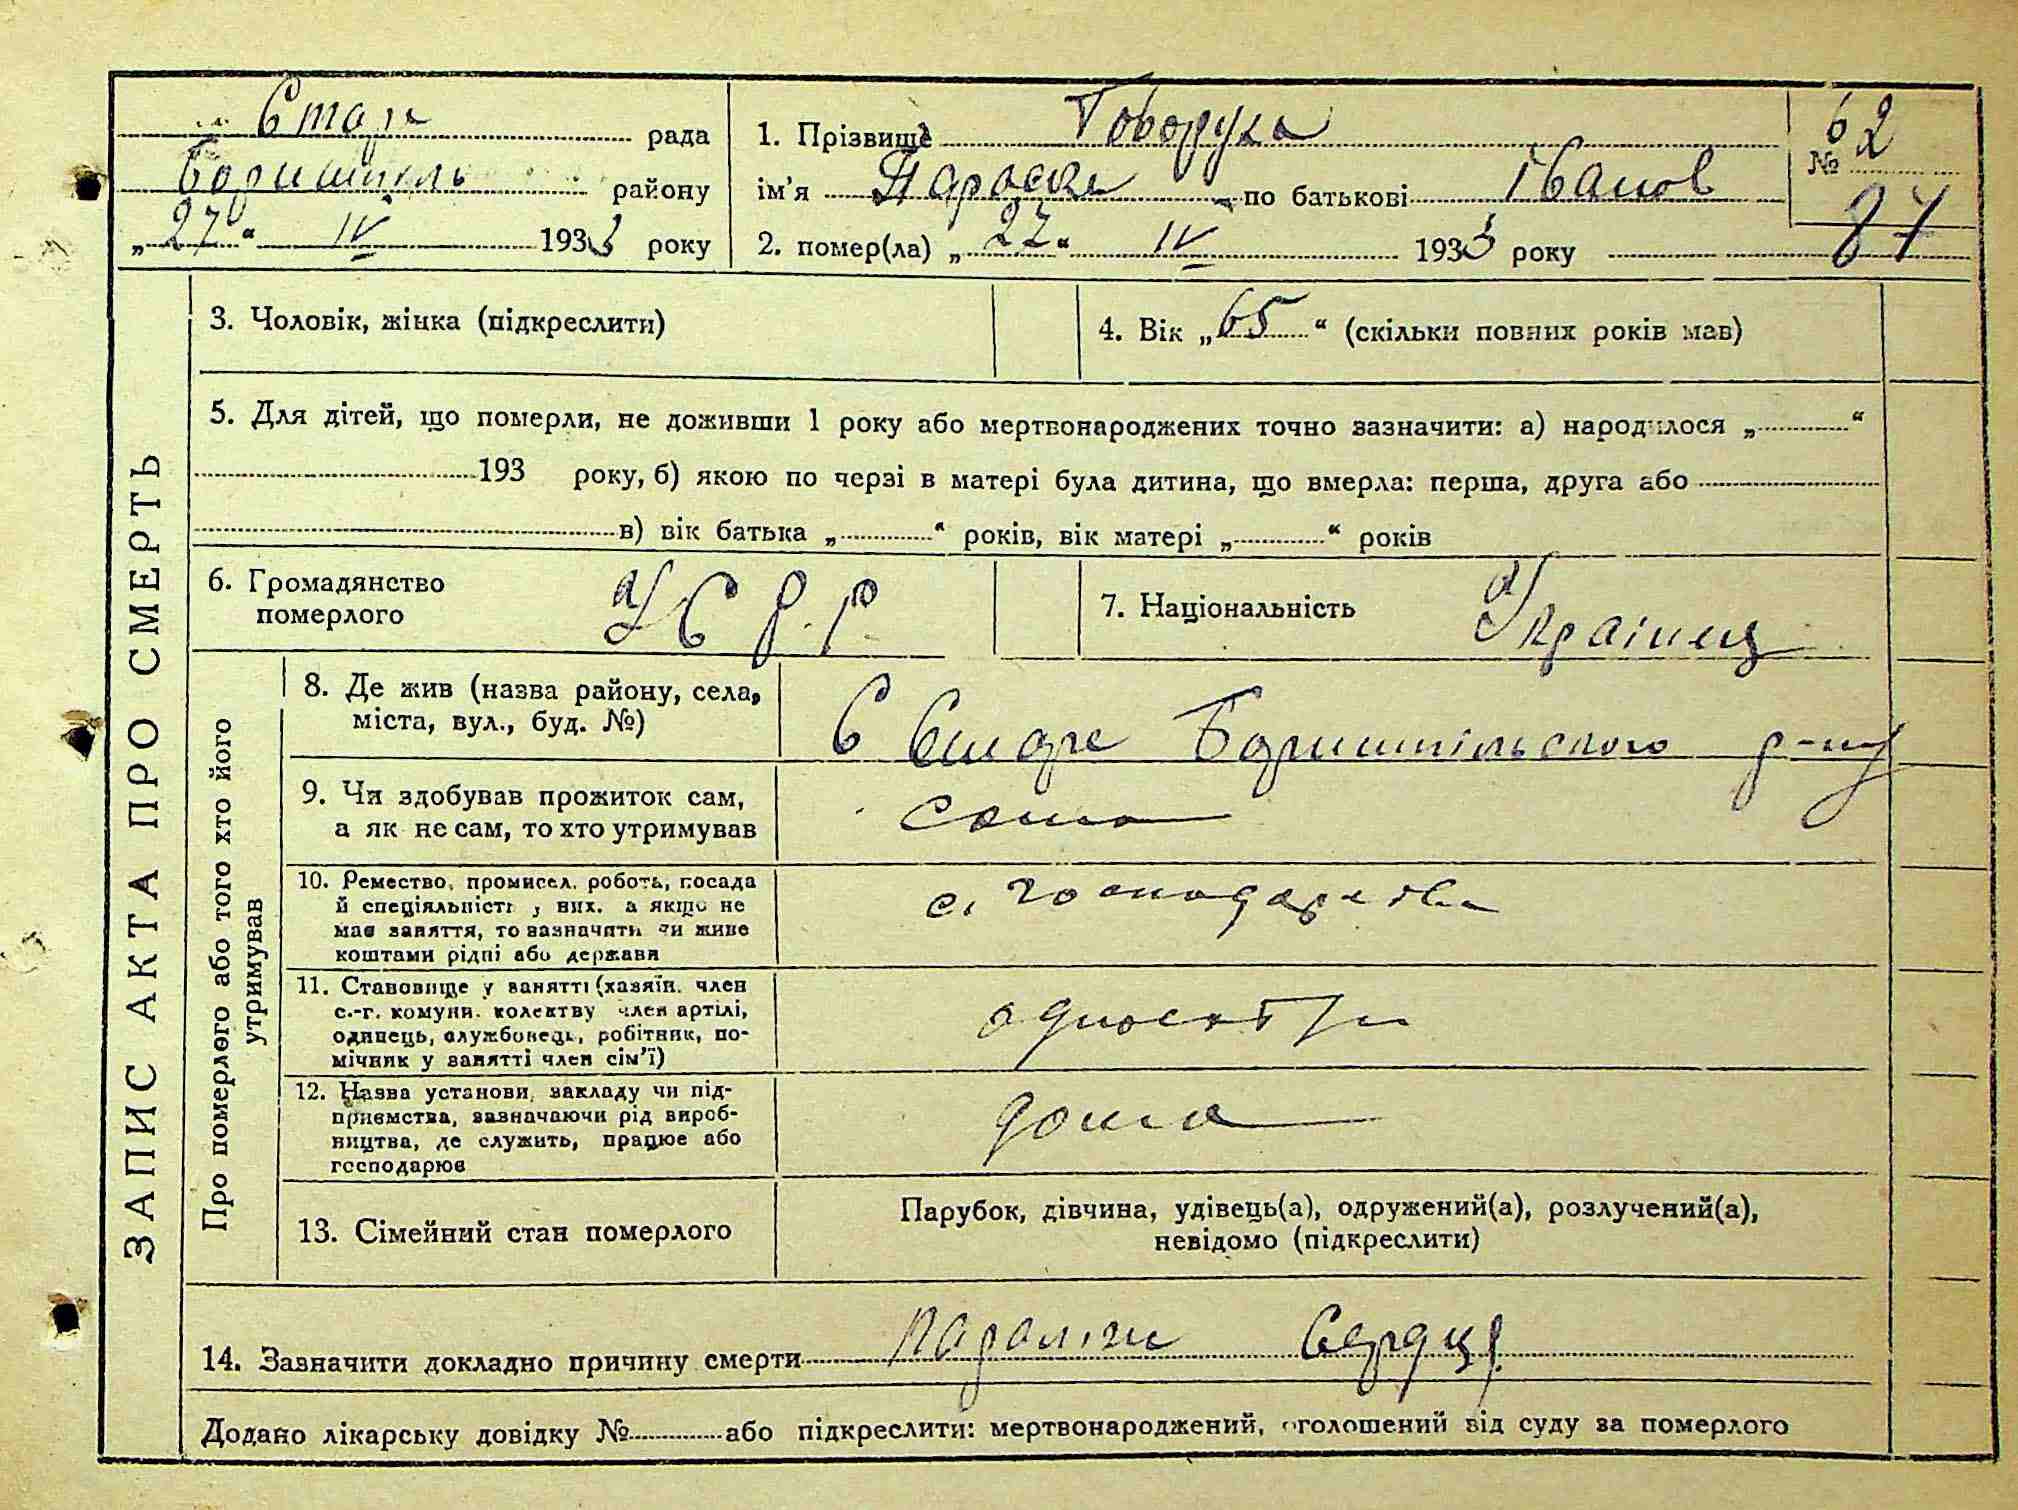 Старе рада
Бориспіль району
„ 27 “ IV 1933 року
1. Прізвище Говоруха
ім’я Параска по батькові Іванов
2. помер(ла) „ 27 “ IV 1933 року
62
№
87
ЗАПИС АКТА ПРО СМЕРТЬ
3. Чоловік, жінка (підкреслити)
4. Вік „ 65 “ (скільки повних років мав)
5. Для дітей, що померли, не доживши 1 року або мертвонароджених точно зазначити: а) народилося „ “
193 року, б) якою по черзі в матері була дитина, що вмерла: перша, друга або
в) вік батька „ “ років, вік матері „ “ років
6. Громадянство
померлого
УСРР
7. Національність Українец
Про померлого або того хто його
утримував
8. Де жив (назва району, села,
міста, вул., буд. №)
С Старе Бориспільського р-ну
9. Чи здобував прожиток сам,
а як не сам, то хто утримував
сама
10. Ремество, промисел, робота, посада
й спеціяльність у них, а якщо не
має заняття, то зазначити чи живе
коштами рідні або держави
с. господарства
11. Становище у занятті (хазяїн, член
с.-г. комуни, колектву член артілі,
одинець, службовець, робітник, по-
мічник у занятті член сім’ї)
12. Назва установи, закладу чи під-
приємства, зазначаючи рід вироб-
ництва, де служить, працює або
господарює
дома
13. Сімейний стан померлого
Парубок, дівчина, удівець(а), одружений(а), розлучений(а),
невідомо (підкреслити)
14. Зазначити докладно причину смерти параліч сердця
Додано лікарську довідку № або підкреслити: мертвонароджений, оголошений від суду за померлого